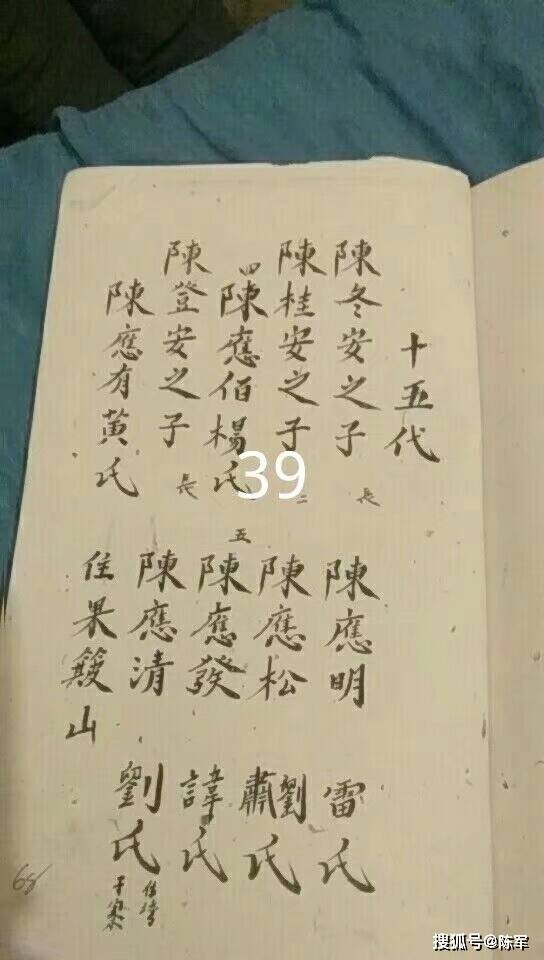 十五代
陳冬安之子 長 陳應明 雷氏
陳桂安之子 二 陳應松 劉蕭氏
四 陳應佰楊氏 五 陳應發 諱氏
陳登安之子 長 陳應清 劉氏
陳應有黃氏 住果簸山
39
68
搜狐号@陈军